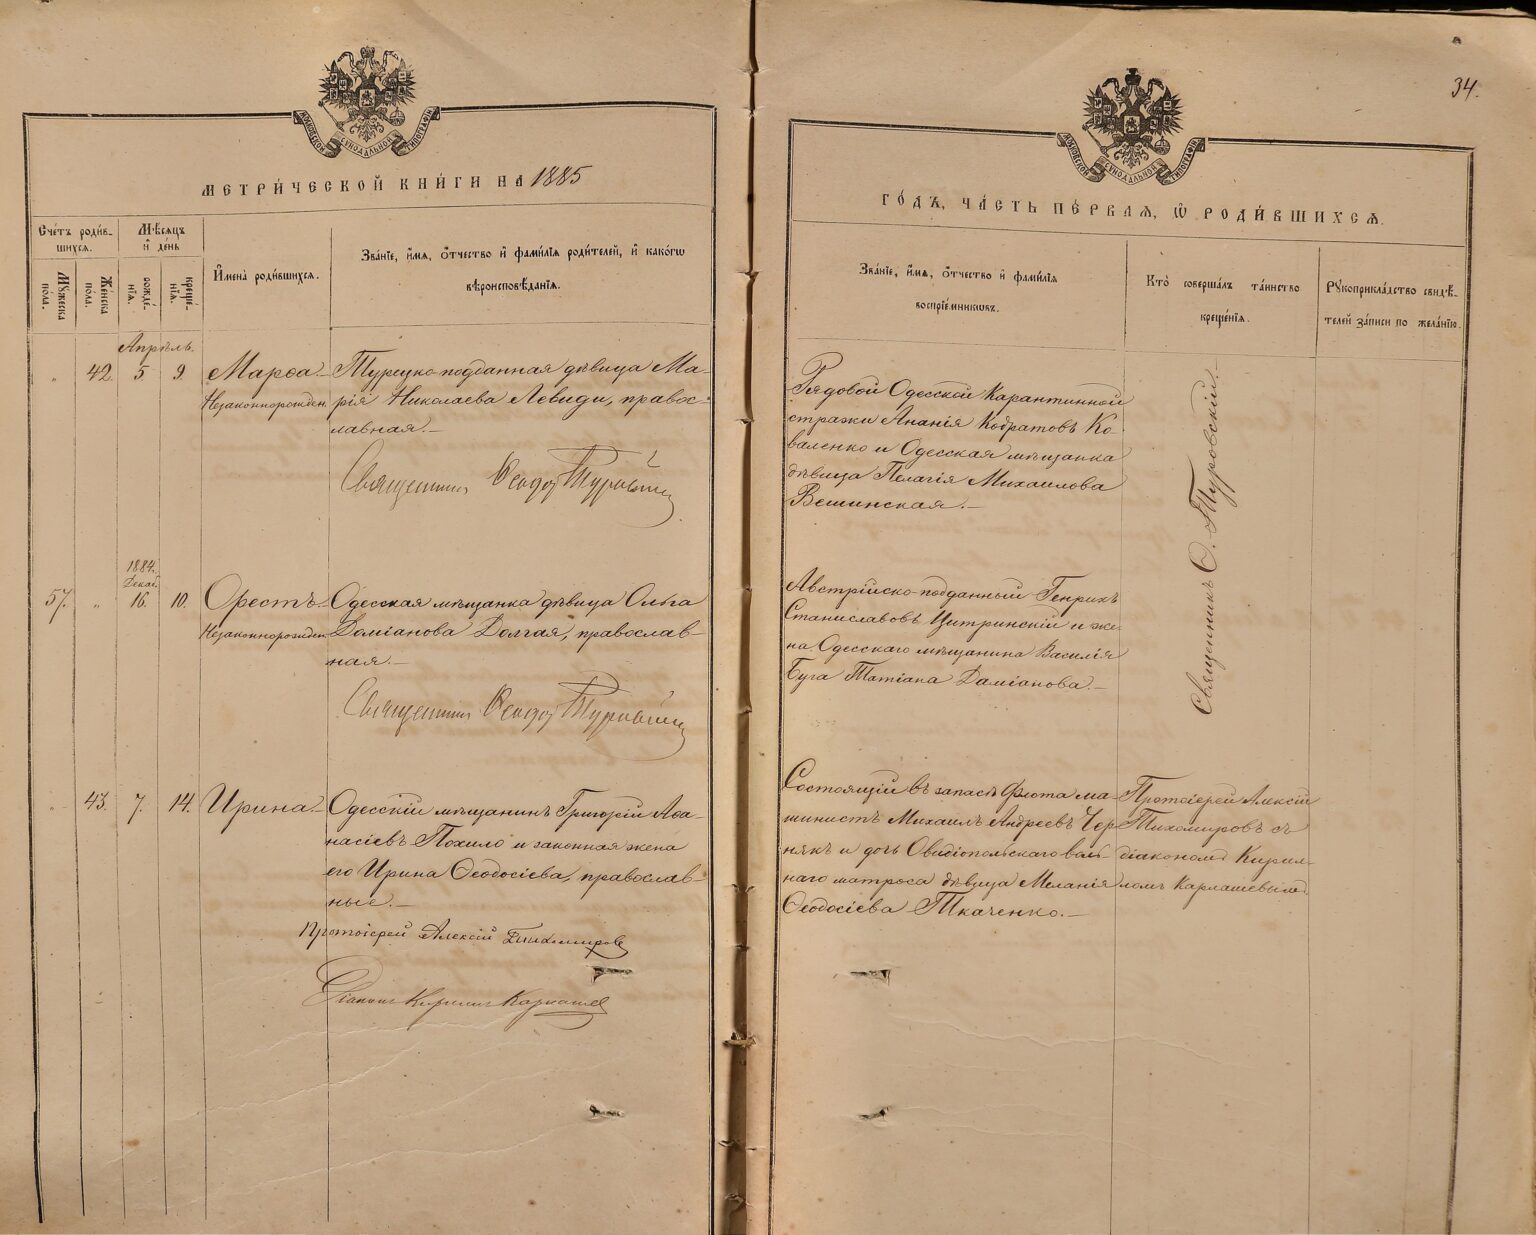 34.
МОСКОВСКОЙ СУНОДАЛЬНОЙ ТИПОГРАФІИ
МЕТРИ́ЧЕСКОЙ КНИ́ГИ НА 1885
Сче́тъ роди́в-
шихся.
Мѣсяцъ
и҆ де́нь
Му́жеска
по́ла.
Же́нска
по́ла.
рожде́-
нїѧ.
креще́-
нїѧ.
И҆мена̀ роди́вшихсѧ.
Зва́нїе, и҆́мѧ, ѻ҆́тчество и҆ фами́лїѧ роди́телей, и҆ како́гѡ
вѣроисповѣ́данїѧ.
Апрѣль.
" 42. 5. 9. Марѳа
Незаконнорожден.
Турецко-подданная дѣвица Ма-
рія Николаева Левиди, правос-
лавная.—
Священникъ Ѳеодоръ Туровскій
1884.
Декаб.
57. " 16. 10. Орестъ
Незаконнорожден.
Одесская мѣщанка дѣвица Ольга
Даміанова Долгая, православ-
ная.—
Священникъ Ѳеодоръ Туровскій
" 43. 7. 14. Ирина
Одесскій мѣщанинъ Григорій Аѳа-
насіевъ Похило и законная жена
его Ирина Ѳеодосіева, православ-
ные.—
Протоіерей Алексій Тихомировъ
Діаконъ Кириллъ Карлашев
МОСКОВСКОЙ СУНОДАЛЬНОЙ ТИПОГРАФІИ
ГО́ДЪ, ЧА́СТЬ ПЕ́РВАЯ, Ѽ РОДИ́ВШИХСЯ.
Зва́нїе, и҆́мѧ, ѻ҆́тчество и҆ фами́лїѧ
воспрїе́мникѡвъ.
Кто̀ соверша́лъ та́инство
креще́нїѧ.
Рꙋкоприкла́дство свидѣ́-
телей за́писи по жела́нїю.
Рядовой Одесской Карантинной
стражи Ананія Кодратовъ Ко-
валенко и Одесская мѣщанка
дѣвица Пелагія Михаилова
Вешинская.—
Австрійско-подданный Генрихъ
Станиславовъ Цитринскій и же-
на Одесскаго мѣщанина Василія
Буга Татіана Даміанова.—
Священникъ Ѳ. Туровскій.
Состоящій въ запасѣ флота ма-
шинистъ Михаилъ Андреевъ Чер-
някъ и дочь Овидіопольскаго воль-
наго матроса дѣвица Меланія
Ѳеодосіева Ткаченко.—
Протоіерей Алексій
Тихомировъ съ
діакономъ Кирил-
ломъ Карлашевымъ